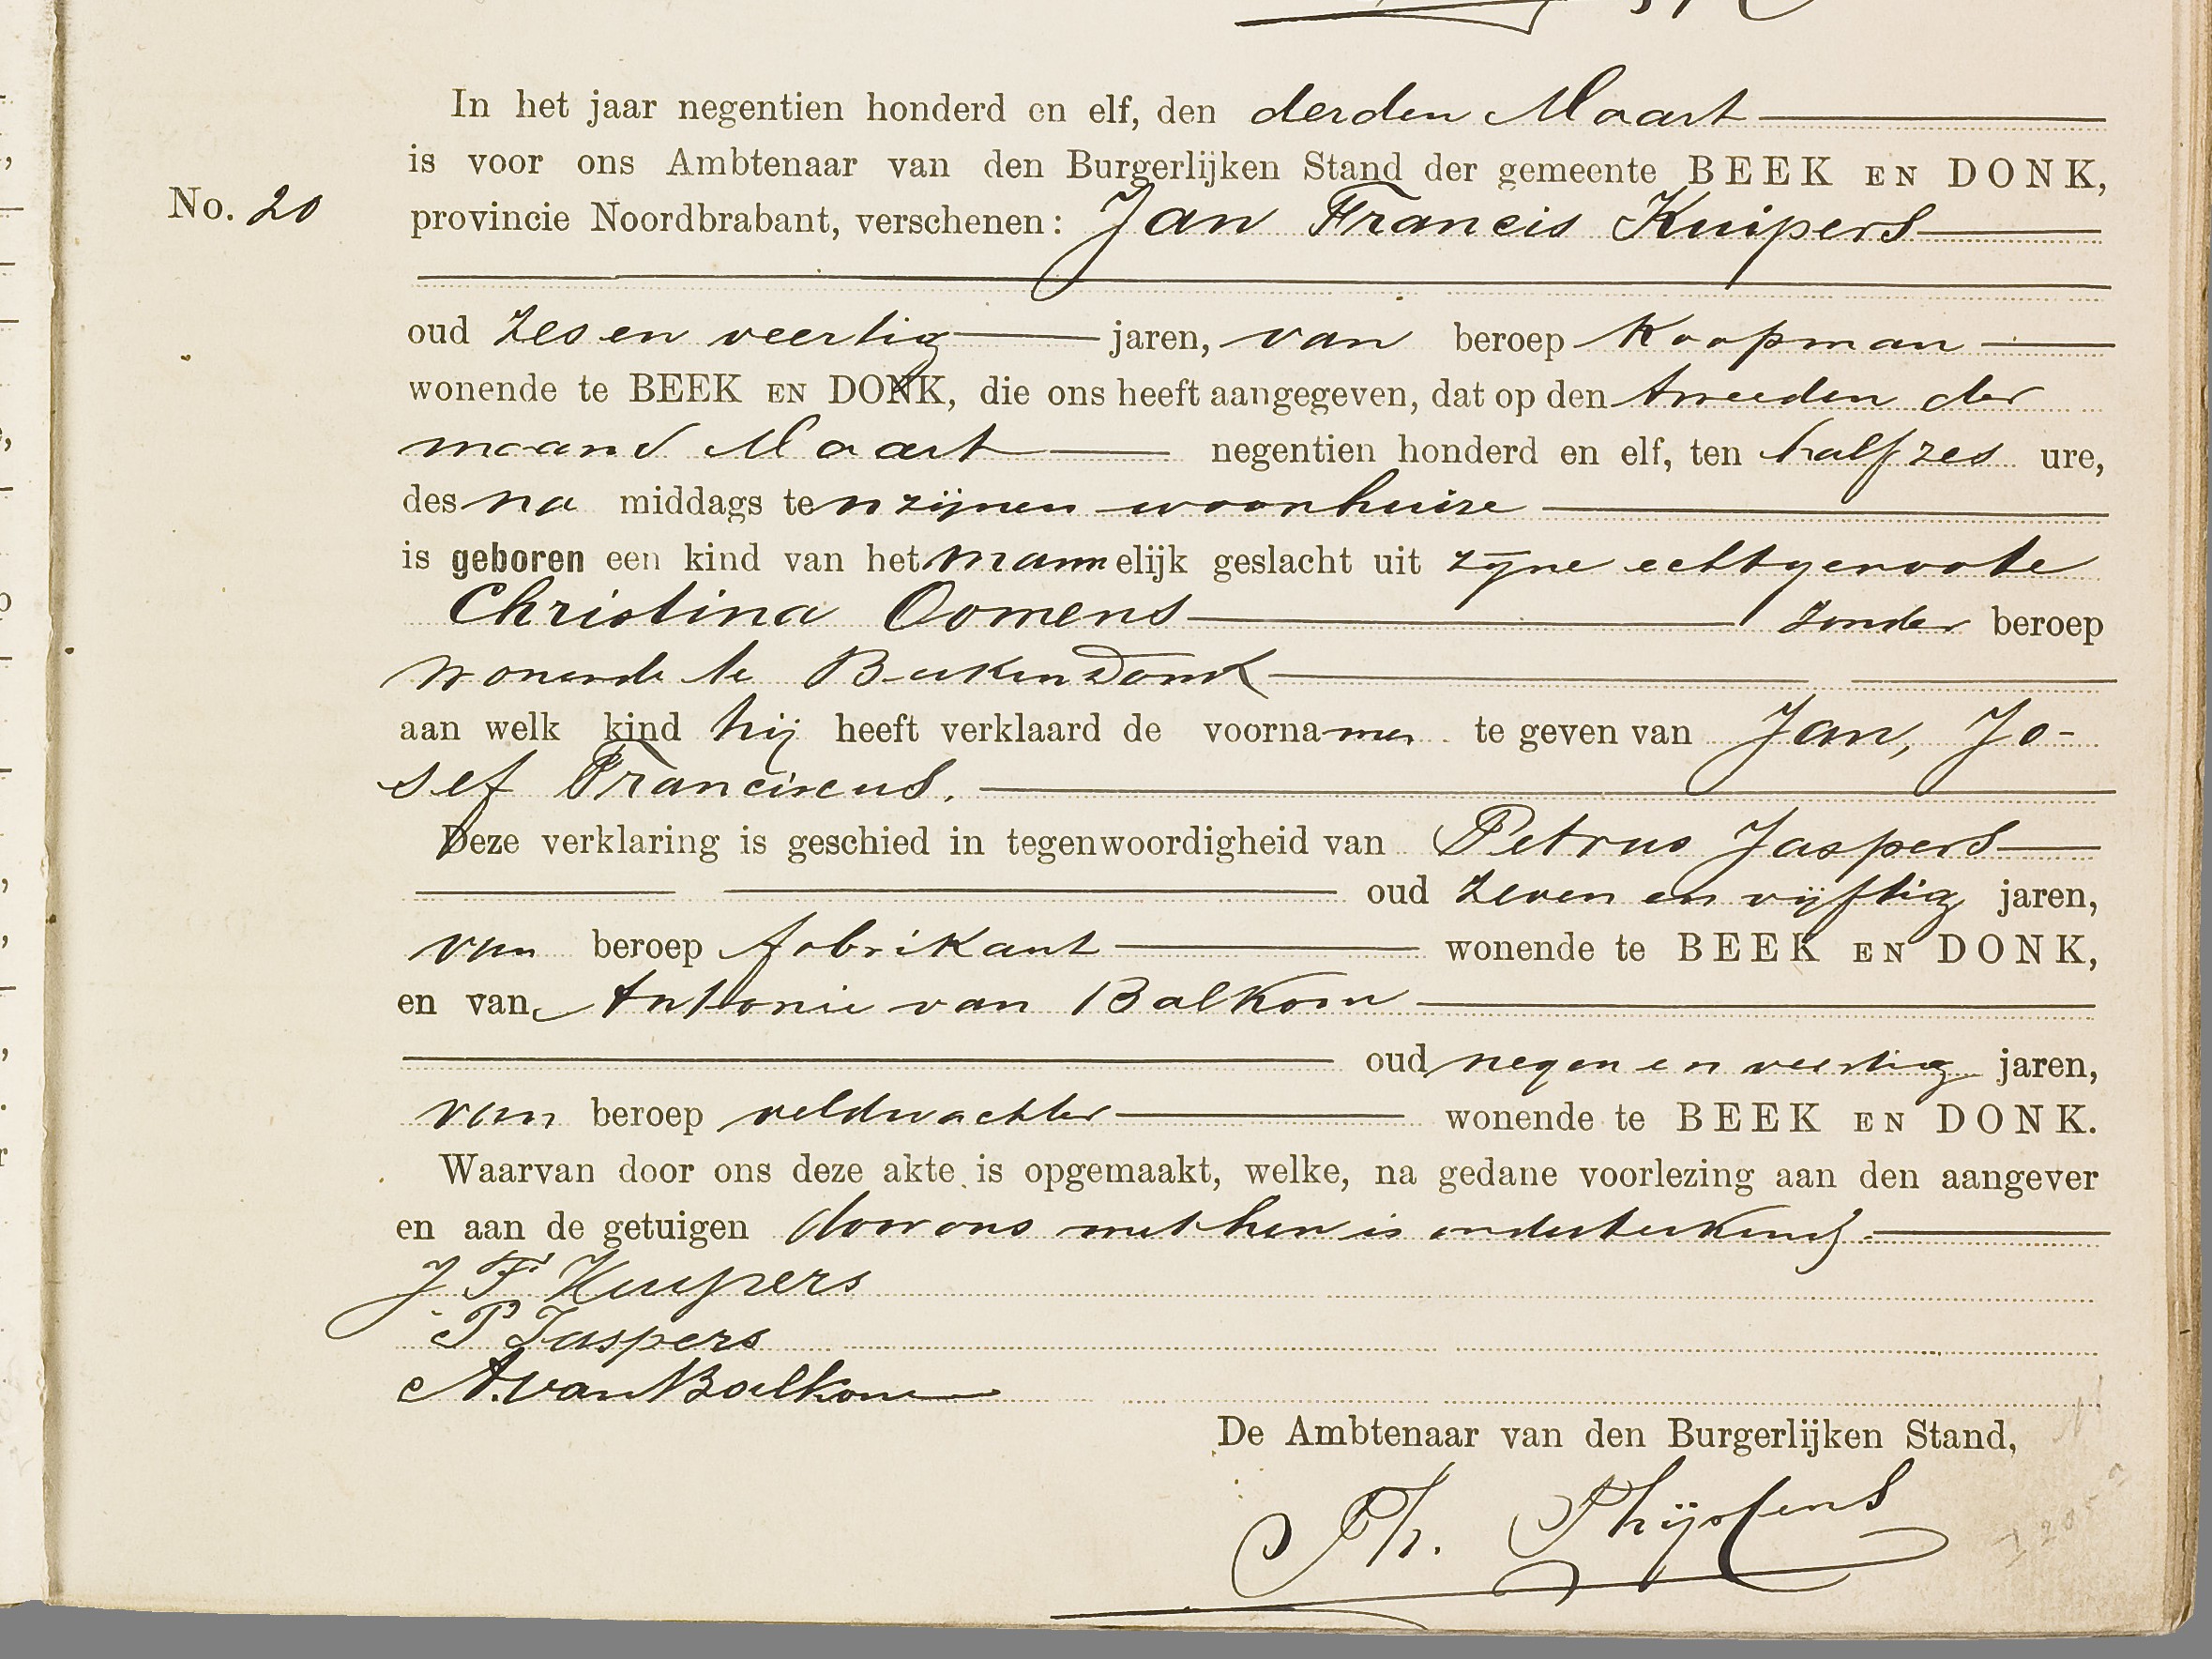 In het jaar negentien honderd en elf, den derden Maart
is voor ons Ambtenaar van den Burgerlijken Stand der gemeente BEEK EN DONK,
No. 20
provincie Noordbrabant, verschenen: Jan Francis Kuipers
oud zes en veertig jaren, van beroep Koopman
wonende te BEEK EN DONK, die ons heeft aangegeven, dat op den tweeden der
maand Maart negentien honderd en elf, ten half zes ure,
des na middags ten zijnen woonhuize
is geboren een kind van het mannelijk geslacht uit zijne echtgenoote
Christina Oomens zonder beroep
wonende te Beek en Donk
aan welk kind hij heeft verklaard de voornamen te geven van Jan, Jo-
sef Franciscus.
Deze verklaring is geschied in tegenwoordigheid van Petrus Jaspers
oud zeven en vijftig jaren,
van beroep fabrikant wonende te BEEK EN DONK,
en van Antonie van Balkom
oud negen en veertig jaren,
van beroep veldwachter wonende te BEEK EN DONK.
Waarvan door ons deze akte is opgemaakt, welke, na gedane voorlezing aan den aangever
en aan de getuigen door ons met hen is onderteekend.
J F Kuypers
P Jaspers
A. van Balkom
De Ambtenaar van den Burgerlijken Stand,
Th. Thijssens